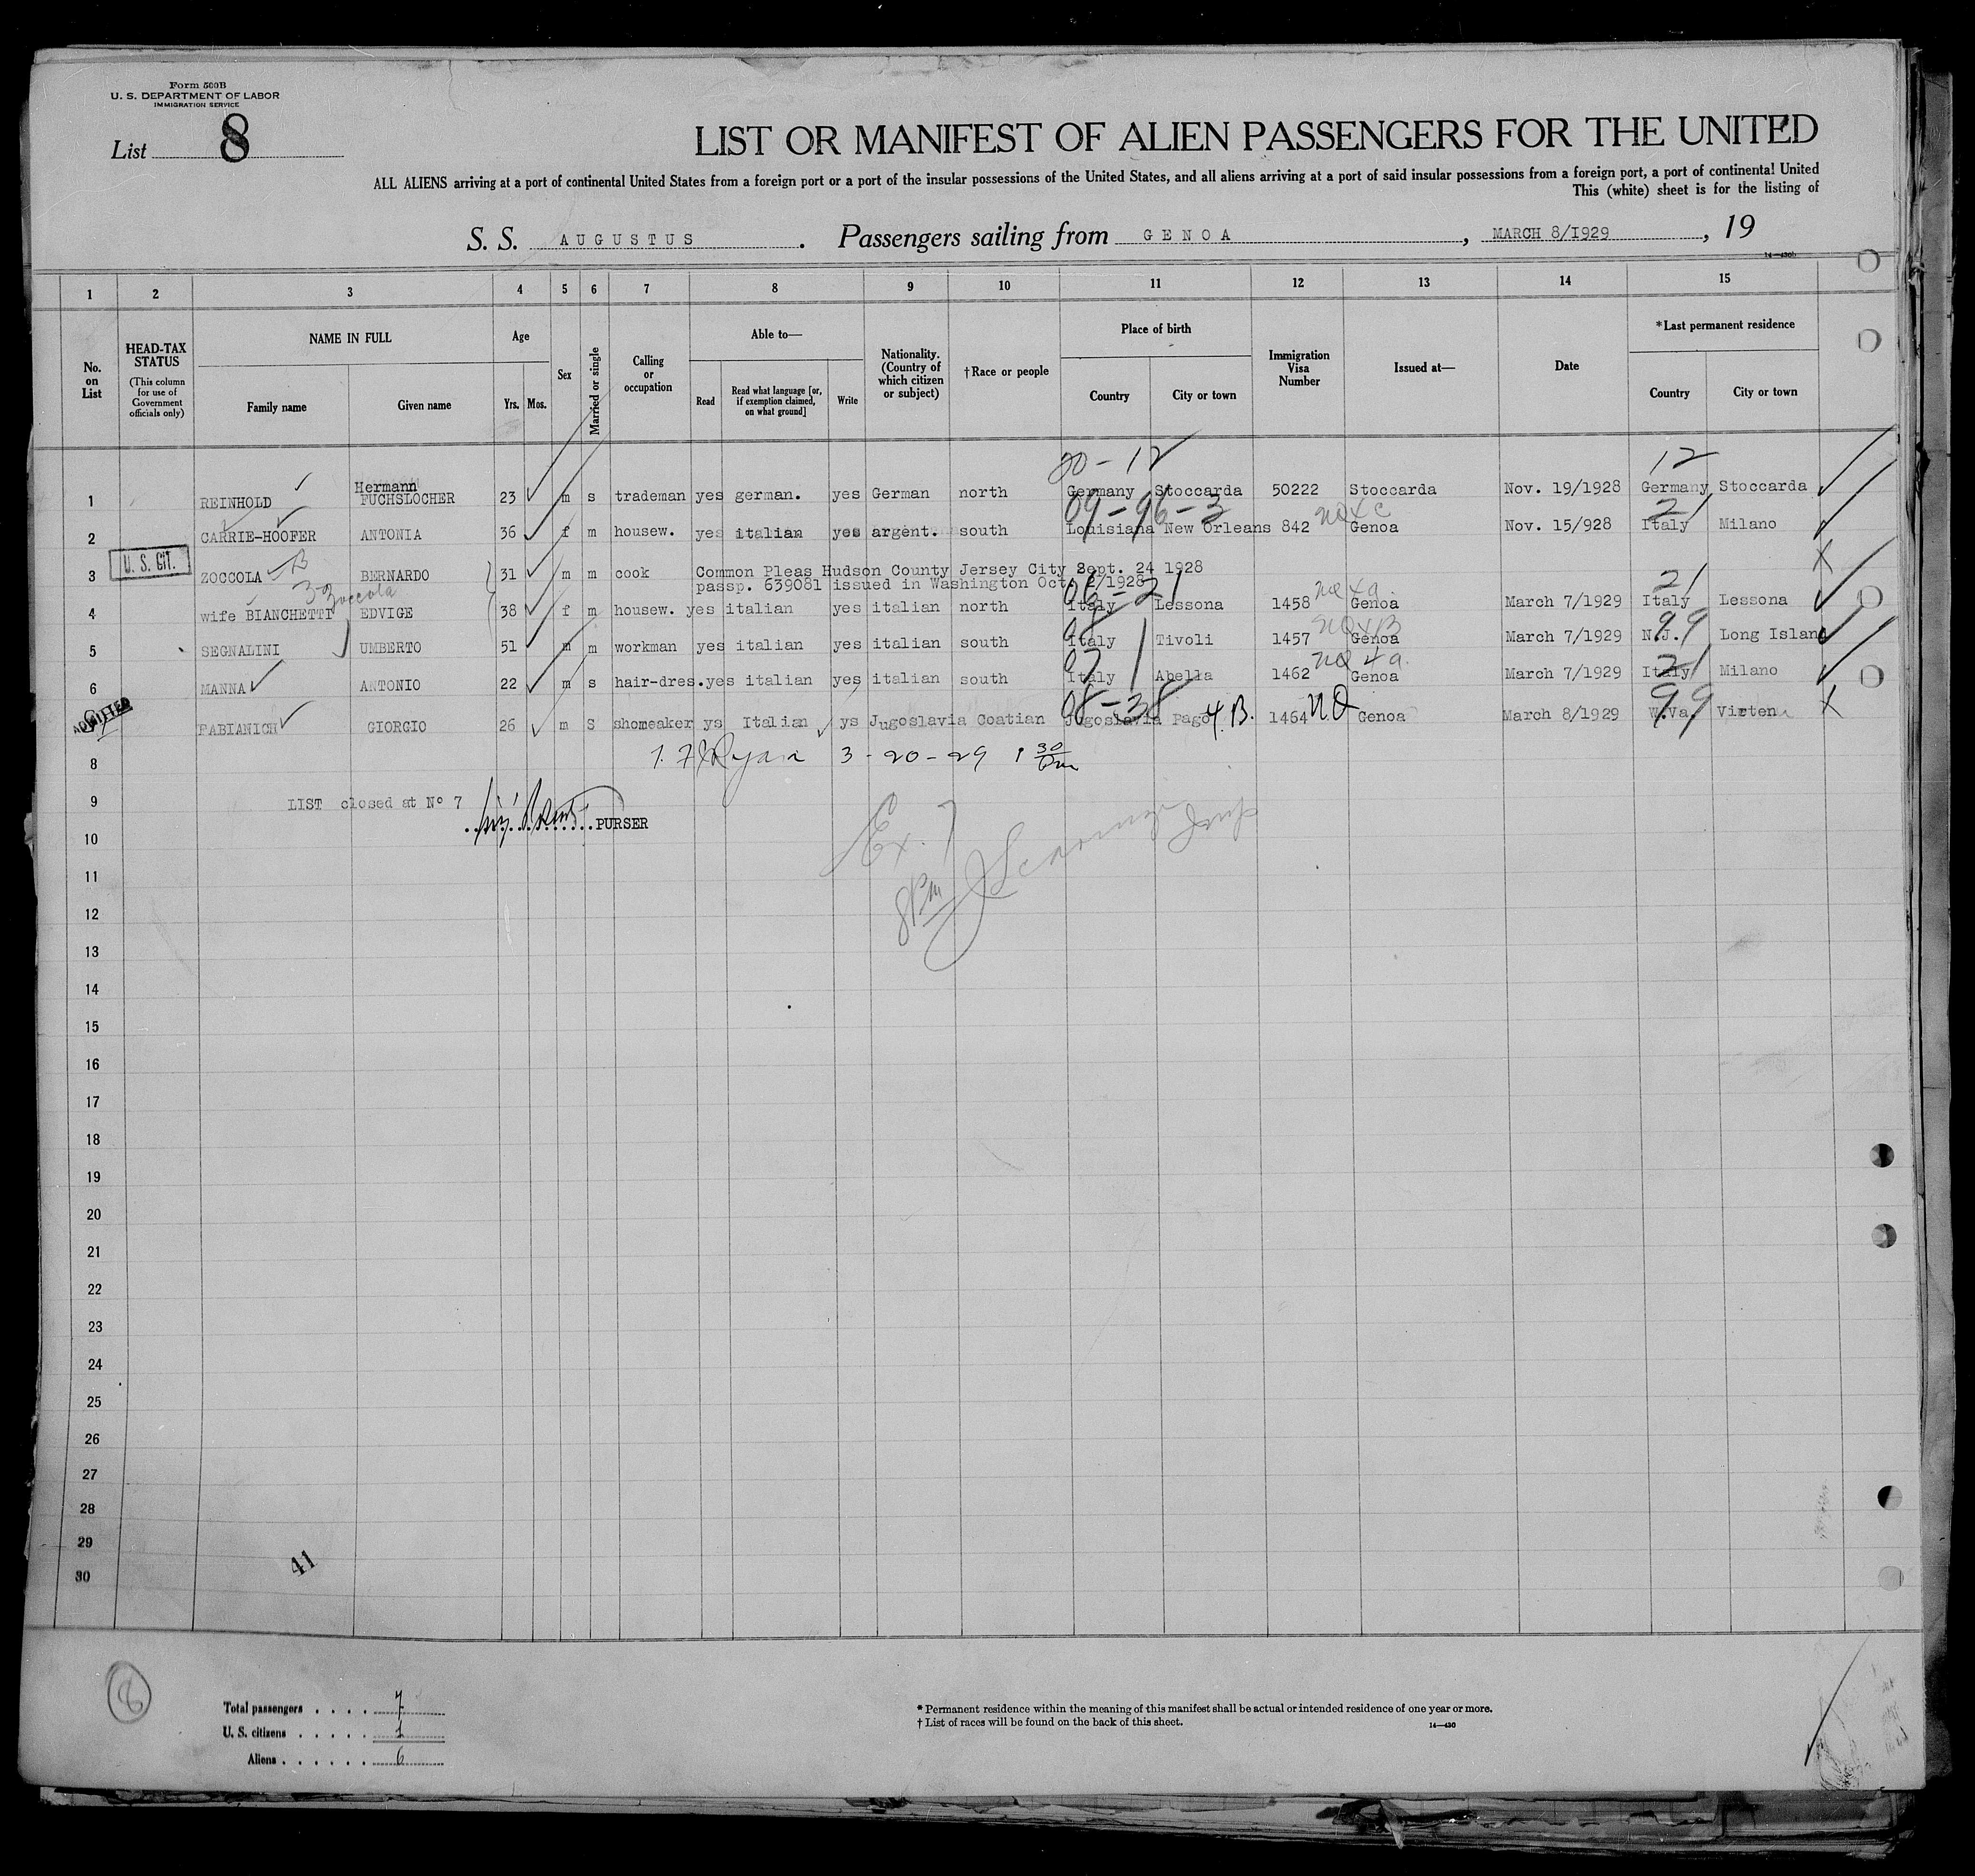 Form 500B
U. S. DEPARTMENT OF LABOR
IMMIGRATION SERVICE
List 8
LIST OR MANIFEST OF ALIEN PASSENGERS FOR THE UNITED
ALL ALIENS arriving at a port of continental United States from a foreign port or a port of the insular possessions of the United States, and all aliens arriving at a port of said insular possessions from a foreign port, a port of continental United
This (white) sheet is for the listing of
S. S. AUGUSTUS. Passengers sailing from GENOA, MARCH 8/1929, 19
14—430b
1 2 3 4 5 6 7 8 9 10 11 12 13 14 15
No. on List
HEAD-TAX STATUS
(This column for use of Government officials only)
NAME IN FULL
Family name Given name
Age
Yrs. Mos.
Sex
Married or single
Calling or occupation
Able to—
Read
Read what language [or, if exemption claimed, on what ground]
Write
Nationality. (Country of which citizen or subject)
†Race or people
Place of birth
Country City or town
Immigration Visa Number
Issued at—
Date
*Last permanent residence
Country City or town
20-12 12
1 REINHOLD Hermann FUCHSLOCHER 23 m s trademan yes german. yes German north Germany Stoccarda 50222 Stoccarda Nov. 19/1928 Germany Stoccarda
09-96-3 NQ4c 21
2 CARRIE-HOOFER ANTONIA 36 f m housew. yes italian yes argent. south Louisiana New Orleans 842 Genoa Nov. 15/928 Italy Milano
U. S. CIT.
3 ZOCCOLA B BERNARDO 31 m m cook Common Pleas Hudson County Jersey City Sept. 24 1928
passp. 639081 issued in Washington Oct. 2/1928
Zoccola 06-21 NQ4a 21
4 wife BIANCHETTI EDVIGE 38 f m housew. yes italian yes italian north Italy Lessona 1458 Genoa March 7/1929 Italy Lessona
NQ4B 99
5 SEGNALINI UMBERTO 51 m m workman yes italian yes italian south Italy Tivoli 1457 Genoa March 7/1929 N.J. Long Island
NQ 4a. 21
6 MANNA ANTONIO 22 m s hair-dres. yes italian yes italian south Italy Abella 1462 Genoa March 7/1929 Italy Milano
ADMITTED 08-38 99
FABIANICH GIORGIO 26 m S shomeaker ys Italian ys Jugoslavia Coatian Jugoslavia Pago 4.B. 1464 NQ Genoa March 8/1929 W.Va. Virten
8 Ryan 3-20-29 1 30 Pm
9 LIST closed at N° 7
PURSER
10
Ex. 7
8 Pm
11
12
13
14
15
16
17
18
19
20
21
22
23
24
25
26
27
28
29
30
41
8
Total passengers . . . . 7
U. S. citizens . . . . . 1
Aliens . . . . . . 6
* Permanent residence within the meaning of this manifest shall be actual or intended residence of one year or more.
† List of races will be found on the back of this sheet.
14—430